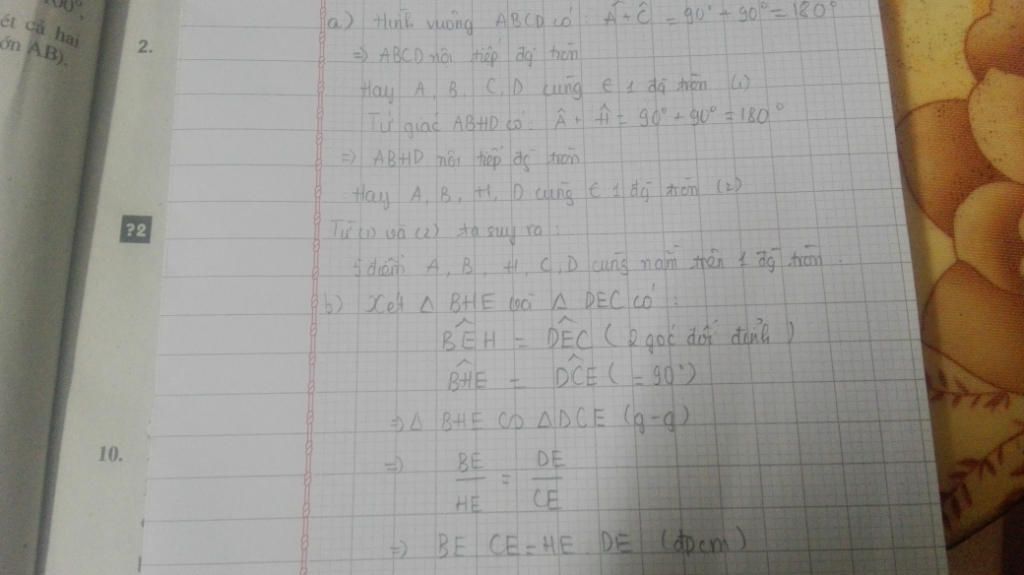 100°,
ét cả hai
ớn AB).
2.
?2
10.
a) Hình vuông ABCD có: Â + Ĉ = 90° + 90° = 180°
=> ABCD nội tiếp đg tròn
Hay A, B, C, D cùng ∈ 1 đg tròn (1)
Tứ giác ABHD có: Â + Ĥ = 90° + 90° = 180°
=> ABHD nội tiếp đg tròn
Hay A, B, H, D cùng ∈ 1 đg tròn (2)
Từ (1) và (2) ta suy ra:
5 điểm A, B, H, C, D cùng nằm trên 1 đg tròn.
b) Xét △ BHE và △ DEC có:
BÊH = DÊC (2 góc đối đỉnh)
BĤE = DĈE (= 90°)
=> △ BHE ∽ △DCE (g-g)
=> BE/HE = DE/CE
=> BE CE = HE. DE (đpcm)